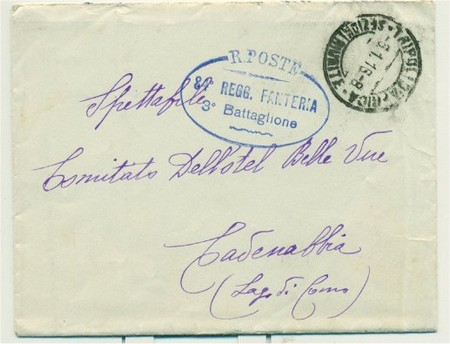 R. POSTE
REGG. FANTERIA
3° Battaglione
TRIPOLI
Spettabile
Comitato Dell'otel Belle Vue
Cadenabbia
(Lago di Como)